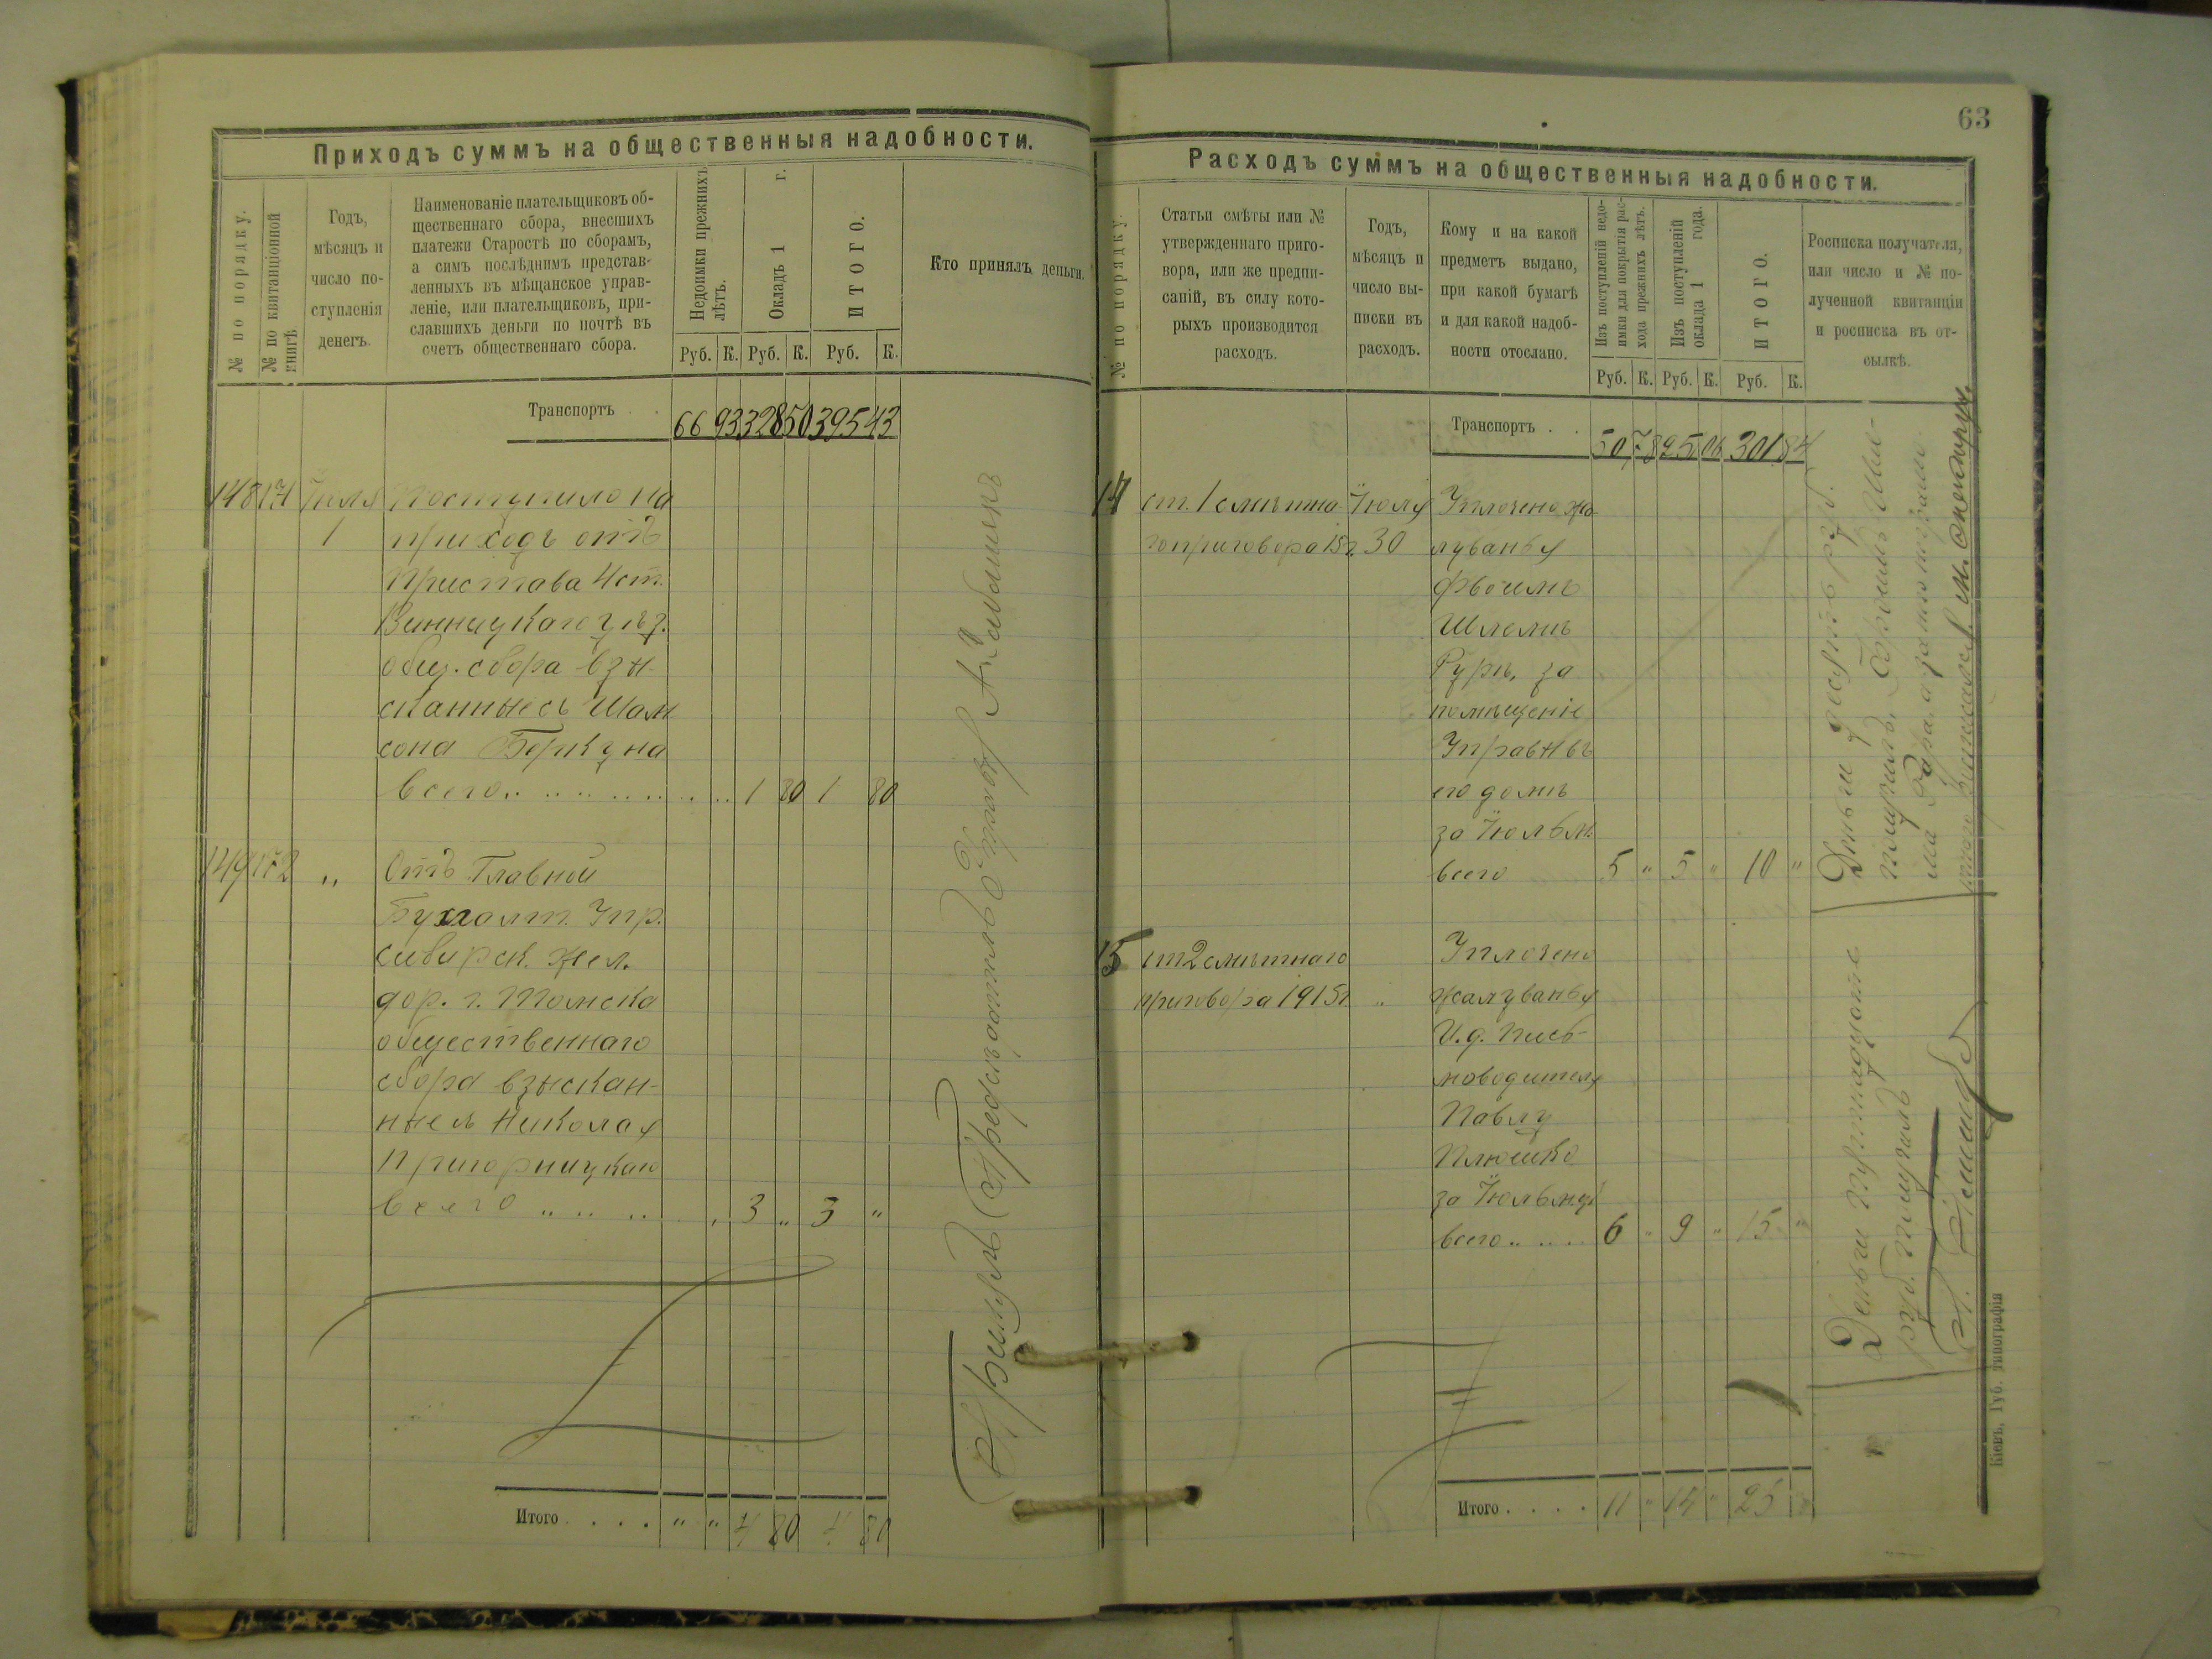 Приходъ суммъ на общественныя надобности.
№ по порядку.
№ по квитанціонной
книгѣ
Годъ,
мѣсяцъ и
число по-
ступленія
денегъ.
Наименованіе плательщиковъ об-
щественнаго сбора, внесшихъ
платежи Старостѣ по сборамъ,
а симъ послѣднимъ представ-
ленныхъ въ мѣщанское управ-
леніе, или плательщиковъ, при-
славшихъ деньги по почтѣ въ
счетъ общественнаго сбора.
Недоимки прежнихъ
лѣтъ.
Окладъ 1 г.
ИТОГО.
Кто принялъ деньги.
Руб. К. Руб. К. Руб. К.
Транспортъ . . 66 93 328 50 395 43
148 171 Іюля Поступило на
1 приходъ отъ
Пристава 4 ст.
Винницкаго уѣз.
общ. сбора взы-
сканные съ Шам
сона Беркуна
всего 1 80 1 80
149 172 " Отъ Главной
Бухгалт. Упр.
сибирск. жел.
дор. г. Томска
общественнаго
сбора взыскан-
ные съ Николая
Пригорницкаго
всего 3 " 3 "
Итого . . . . " " 4 80 4 80
63
Расходъ суммъ на общественныя надобности.
№ по порядку.
Статьи смѣты или №
утвержденнаго приго-
вора, или же предпи-
саній, въ силу кото-
рыхъ производится
расходъ.
Годъ,
мѣсяцъ и
число вы-
писки въ
расходъ.
Кому и на какой
предметъ выдано,
при какой бумагѣ
и для какой надоб-
ности отослано.
Изъ поступленій недо-
имки для покрытія рас-
хода прежнихъ лѣтъ.
Изъ поступленій
оклада 1 года.
ИТОГО.
Росписка получателя,
или число и № по-
лученной квитанціи
и росписка въ от-
сылкѣ.
Руб. К. Руб. К. Руб. К.
Транспортъ . . 50 78 251 06 301 84
14 ст. 1 смѣтна- Іюля Уплочено жа-
го приговора 15 г. 30 лованья
Фроимъ
Шлемѣ
Гурѣ, за
помѣщеніе
Управы въ
его домѣ
за Іюль м.
всего 5 " 5 " 10 "
Деньги десять руб.
получилъ Фроимъ Шле-
ма
15 ст 2 смѣтнаго Уплочено
приговора 1915 г. " жалованья
И. д. Пись-
моводителя
Павлу
Плюшко
за Іюль м-цъ
всего 6 " 9 " 15 "
Деньги пятнадцать
руб. получилъ
Итого . . . . 11 " 14 " 25 "
Кіевъ, Губ. типографія